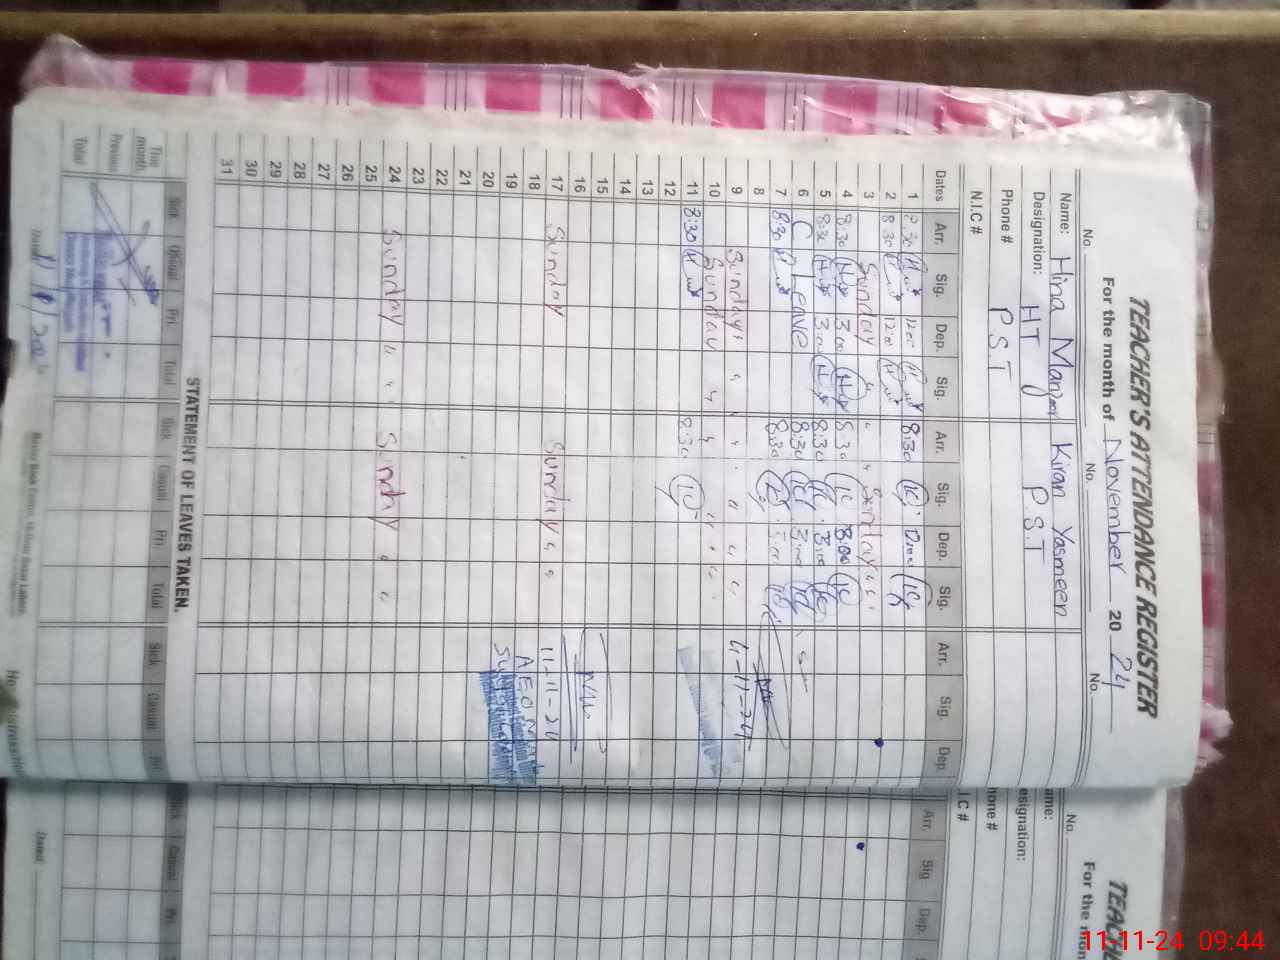 TEACHER'S ATTENDANCE REGISTER
For the month of November 20 24
No. No. No.
Name: Hina Manzoor Kiran Yasmeen
Designation: HT P.S.T
Phone # P.S.T
N.I.C #
Dates Arr. Sig. Dep. Sig. Arr. Sig. Dep. Sig. Arr. Sig. Dep
1 8:30 12:00 8:30
2 8:30 12:00
3 Sunday " " Sunday " "
4 8:30 3:00 8:30 3:00
5 8:30 3:00 8:30 3:00
6 C Leave 8:30 3:00
7 8:30 8:30
8
9 Sunday " " " " " 4-11-24
10 Sunday " " " " "
11 8:30 8:30
12
13
14
15
16
17 Sunday Sunday " " 11-11-24
18 AEO
19
20
21
22
23
24 Sunday " " Sunday " "
25
26
27
28
29
30
31
STATEMENT OF LEAVES TAKEN.
Sick Casual Pri. Total Sick Casual Pri. Total Sick. Casual Pri
This month
Previous
Total
Dated
TEACHE
For the mon
No.
ame:
esignation:
hone #
.I.C #
Arr. Sig Dep.
Sick Casual Pri.
Dated
11-11-24 09:44